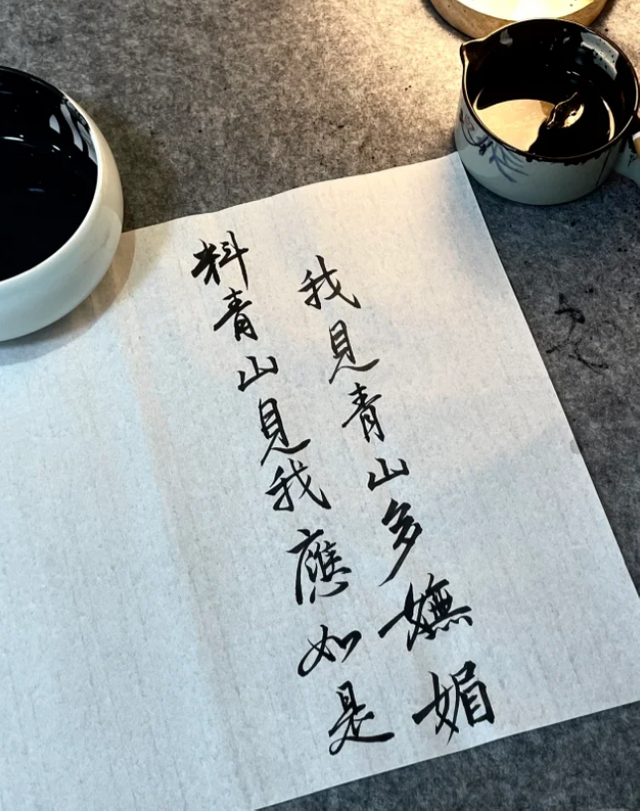 我見青山多嫵媚
料青山見我應如是